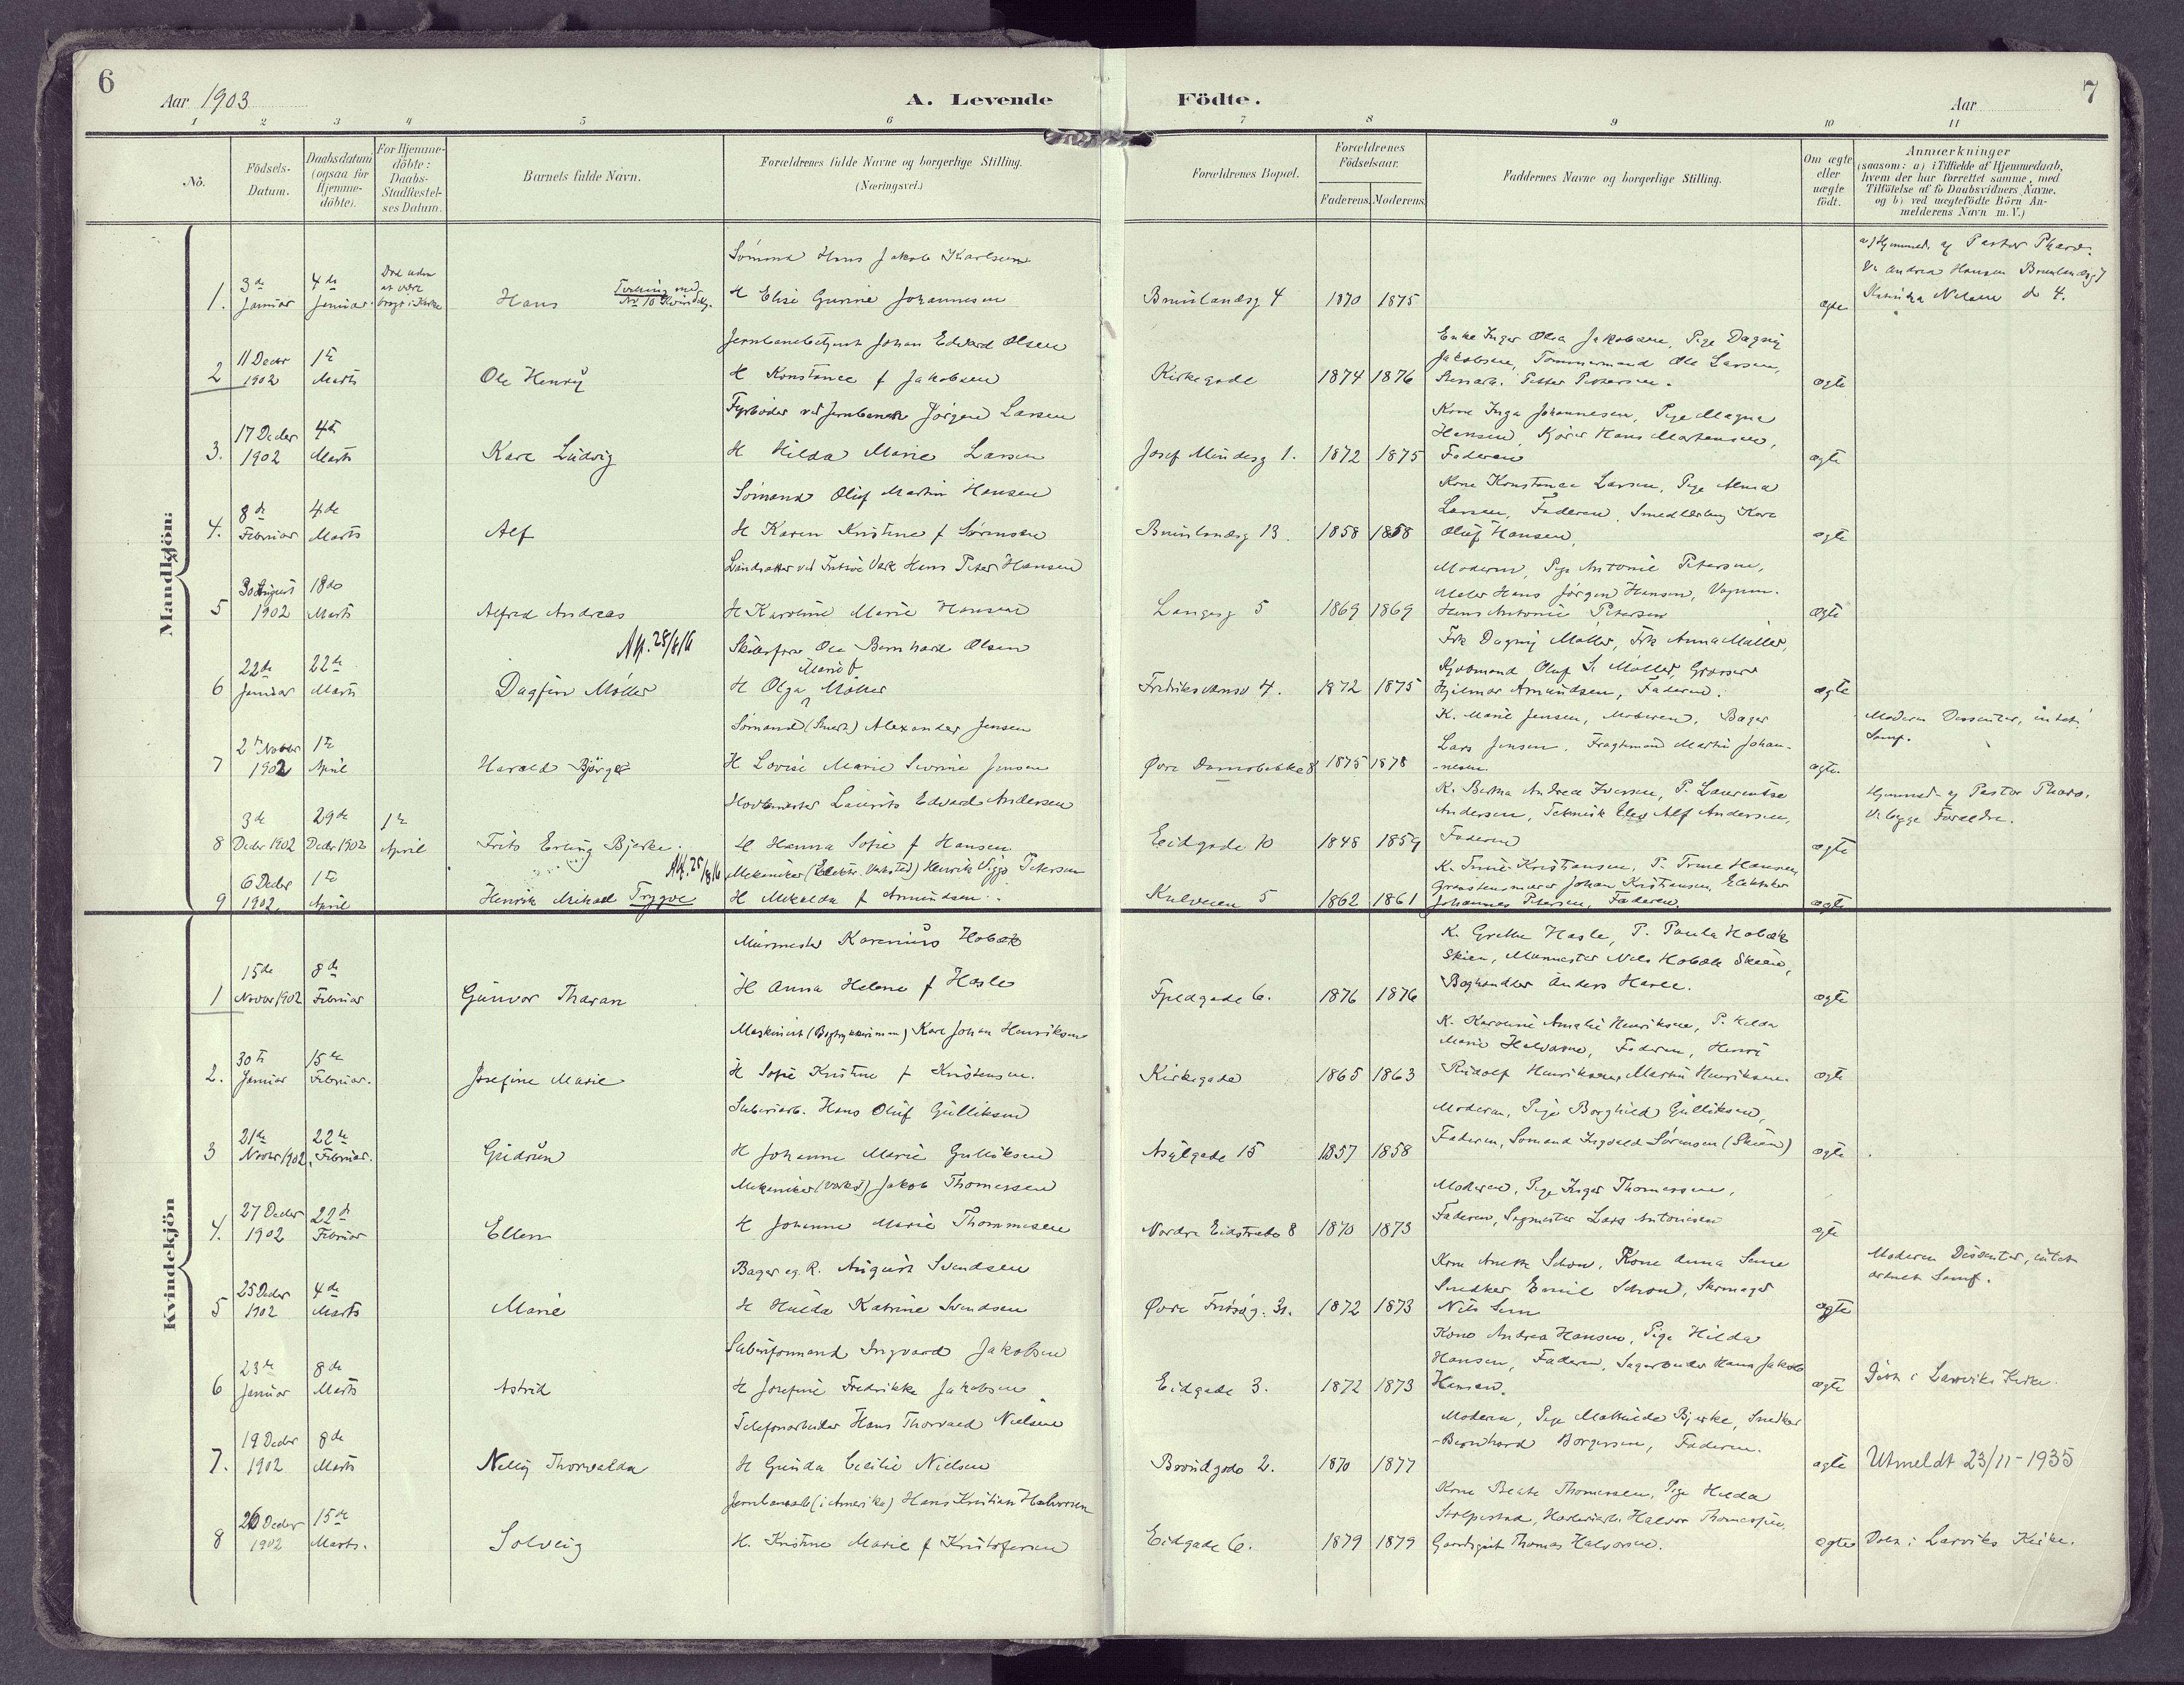 6
Aar 1903
A. Levende
Födte.
Aar
7
1 2 3 4 5 6 7 8 9 10 11
No.
Födsels-
Datum.
Daabsdatum
(ogsaa for
Hjemme-
döbte).
For Hjemme-
döbte:
Daabs-
Stadfæstel-
ses Datum.
Barnets fulde Navn.
Forældrenes fulde Navne og borgerlige Stilling.
(Næringsvei.)
Forældrenes Bopæl.
Forældrenes
Födselsaar.
Faderens. Moderens.
Faddernes Navne og borgerlige Stilling.
Om ægte
eller
uægte
födt.
Anmærkninger
(saasom: a) i Tilfælde af Hjemmedaab,
hvem der har forrettet samme, med
Tilföielse af to Daabsvidners Navne,
og b) ved uægtefödte Börn An-
melderens Navn m. V.)
Mandkjön:
1. 3de Januar
4de Januar
Död uden at være bragt i Kirke
Hans
Tvilling med No 10
Sömand Hans Jakob Karlsen
H Elise Gurine Johannesen
Brunlandsg 4
1870 1875
ægte
a) Hjemmed. af Pastor Pharo.
V. Andrea Hansen
Nelsen do 4.
2 11 Decbr 1902
1te Marts
Ole Henry
Jernbanebetjent Johan Edvard Olsen
H Konstance f Jakobsen
Kirkegade
1874 1876
Enke Inger Olea Jakobsen, Pige Dagny
Jakobsen, Tömmermand Ole Larsen,
Stenarb. Petter Pettersen.
ægte
3. 17 Decbr 1902
4de Marts
Kare Ludvig
Fyrböder ved Jernbanen Jörgen Larsen
H Hilda Marie Larsen
Josef Mindesg 1.
1872 1875
Kone Inga Johannesen, Pige Magna
Hansen, Kjörer Hans Martensen,
Faderen
ægte
4. 8de Februar
4de Marts
Alf
Sömand Oluf Martin Hansen
H Karen Kristine f Sörensen
Brunlandsg 13.
1858 1858
Kone Konstance Larsen, Pige Alma
Larsen, Faderen, Smedlærling Kare
Oluf Hansen,
ægte
5 30 August 1902
18de Marts
Alfred Andreas
Hans Peter Hansen
H Karoline Marie Hansen
Langesg 5
1869 1869
Moderen, Pige Antonie Petersen,
Maler Hans Jörgen Hansen, Vognm.
Hans Antonie Petersen
ægte
6 22de Januar
22de Marts
Att. 28/8/16
Dagfin Möller
Skibsförer Ole Bernhard Olsen
Marie f
H Olga Möller
Fredriksværnsv 4.
1872 1875
Frk Dagny Möller, Frk Anna Möller,
Kjöbmand Oluf S. Möller, Grosserer
Hjelmar Amundsen, Faderen.
ægte
7 2den Novbr 1902
1te April
Harald Björge
Sömand Alexander Jensen
H Lovise Marie Severine Jensen
Övre Damsbakke 8
1875 1878
K. Marie Jensen, Moderen, Bager
Lars Jensen, Fragtmand Martin Johan-
-nesen.
ægte.
Moderen Dissenter, intet
Samf.
8 3de Decbr 1902
29de Decbr 1902
1te April
Frits Erling Bjerke.
Hovmester Laurits Edvard Andersen
H Hanna Sofie f Hansen
Eidgade 10
1848 1859
K. Berta Andrea Iversen, P. Laurentse
Andersen, Teknisk Elev Alf Andersen,
Faderen
ægte
Hjemmed. af Pastor Pharo.
V. begge Forældre.
9 6 Decbr 1902
1te April
Att. 25/8/16
Henrik Mikael Trygve
Mekaniker (Elektr. Værksted) Henrik Viggo Petersen
H Mekalda f Amundsen.
Kulveien 5
1862 1861
K. Trine Kristiansen, P. Trine Hansen,
Grændsemurer Johan Kristiansen, Elektriker
Johannes Petersen, Faderen.
ægte
Kvindekjön
1 15de Novbr 1902
8de Februar
Gunvor Tharan
Murmester Karenius Hobæk
H Anna Helene f Hasle
Fjeldgade 6.
1876 1876
K. Grethe Hasle, P. Paula Hobæk
Skien, Murmester Nils Hobæk Skien,
Boghandler Anders Hasle.
ægte
2. 30te Januar
15de Februar.
Josefine Marie
Maskinist (Bogtrykkerimand) Karl Johan Henriksen
H Sofie Kristine f Kristensen.
Kirkegade
1865 1863
K. Karoline Amalie Henriksen, P. Hilda
Marie Halvorsen, Faderen, Henri
Rudolf Henriksen, Martin Henriksen.
ægte
3 21de Novbr 1902
22de Februar.
Gudrun
Hans Oluf Gulliksen
H Johanne Marie Gulliksen
Asylgade 15
1857 1858
Moderen, Pige Borghild Gulliksen,
Faderen, Sömand Ingvald Sörensen (Skien)
ægte
4. 27 Decbr 1902
22de Februar
Ellen
Mekaniker (Værkst) Jakob Thomessen
H Johanne Marie Thommesen
Nordre Eidstredo 8
1870 1873
Moderen, Pige Inger Thomassen,
Faderen, Sagmester Lars Antonisen
ægte
5 25 Decbr 1902
4de Marts
Marie
Bager eg. R. August Svendsen
H Hulda Katrine Svendsen
Övre Fritsög. 31.
1872 1873
Kone Anette Schow, Kone Anna Sem
Snedker Emil Schow, Skomager
Nils Sem
ægte
Moderen Dissenter, intet
ordnet Samf.
6 23de Januar
8de Marts
Astrid
Ingvard Jakobsen
H Josefine Fredrikke Jakobsen
Eidgade 3.
1872 1873
Kone Andrea Hansen, Pige Hilda
Hansen, Faderen, Sagarbeider Hans Jakob
Hansen.
ægte
Döbt i Larviks Kirke.
7. 19 Decbr 1902
8de Marts
Nelly Thorvalda
Telefonarbeider Hans Thorvald Nielsen
H Gunda Cecilie Nielsen
Brændgade 2.
1870 1877
Moderen, Pige Mathilde Bjerke, Snedker
Bernhard Borgersen, Faderen.
ægte
Utmeldt 23/11-1935
8 26 Decbr 1902
15de Marts.
Solveig
Jernbanearb (i Amerika) Hans Kristian Halvorsen
H. Kristine Marie f Kristofersen
Eidgade 6.
1879 1879
Kone Beate Thomassen, Pige Hilda
Stolpestad, Halvor Thomassen,
Thomas Halvorsen.
ægte
Döbt i Larviks Kirke.